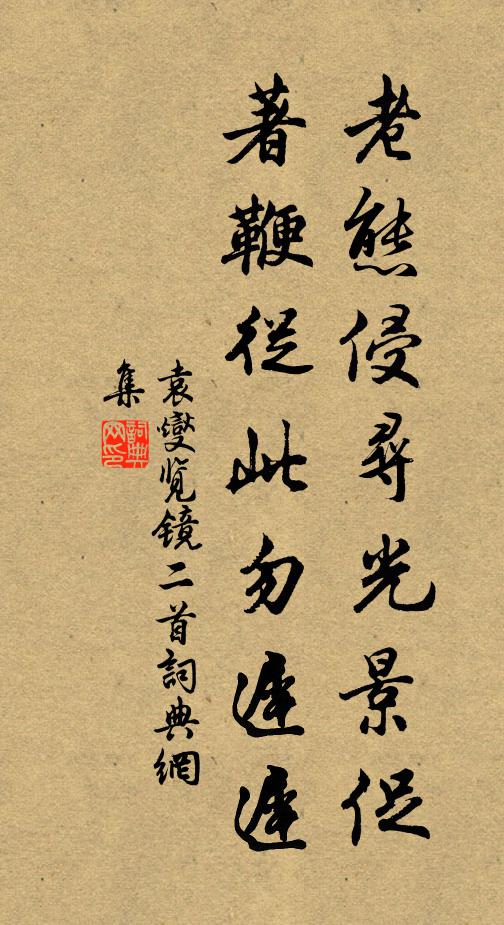 老態侵尋光景促
著鞭從此勿遲遲
袁燮覽鏡二首詞典網
集
詞典
网印